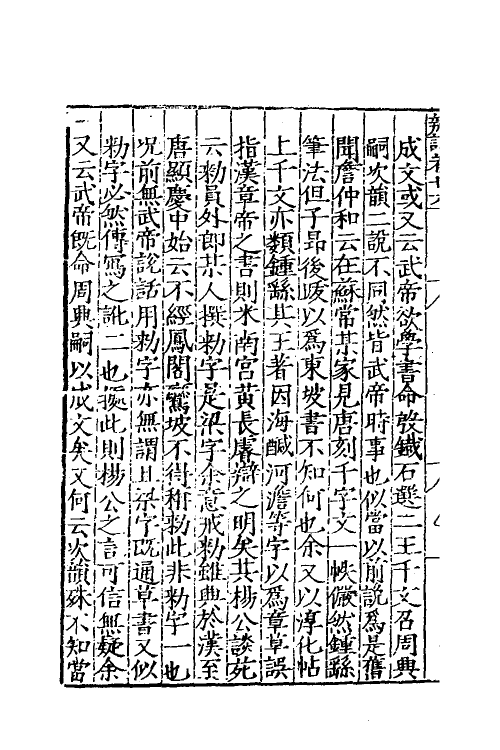 成文或又云武帝欲學書命殷鐵石選二王千文召周典
嗣次韻二說不同然皆武帝時事也似當以前說爲是舊
聞詹仲和云在蘇常某家見唐刻千字文一帙儼然鍾繇
筆法但子昂後䟦以爲東坡書不知何也余又以淳化帖
上千文亦類鍾繇其王著因海醎河澹等字以爲章草誤
指漢章帝之書則米南宫黄長睿辯之明矣其楊公談苑
云勑員外郎某人撰勑字是梁字余意戒勑雖典於漢至
唐顯慶中始云不經鳳閣鸞坡不得稱勑此非勑字一也
况前無武帝說話用勑字亦無謂且梁字既通草書又似
勑字必然傳寫之訛二也據此則楊公之言可信無疑余
又云武帝既命周典嗣以成文矣又何云次韻殊不知當